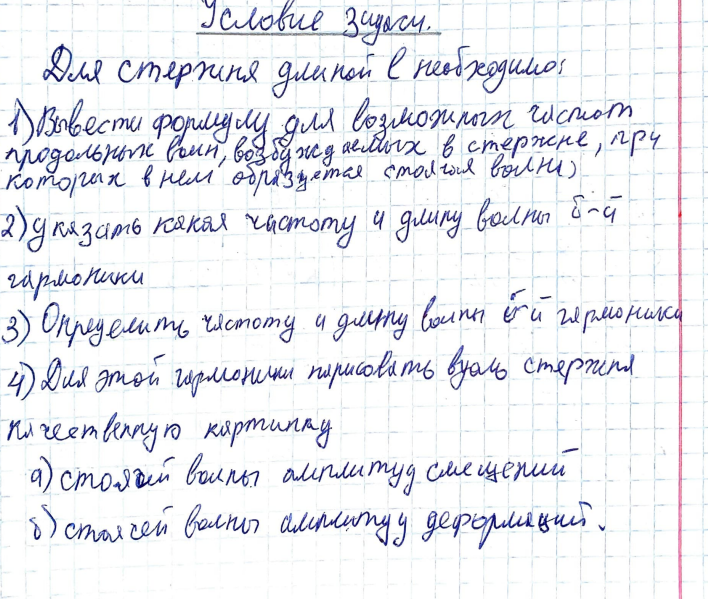 Условие задачи.
Для стержня длиной l необходимо:
1) Вывести формулу для возможных частот
продольных волн, возбуждаемых в стержне, при
которых в нем образуется стоячая волна;
2) указать какая частоту и длину волны 5-й
гармоники
3) Определить частоту и длину волны й гармоники
4) Для этой гармоники нарисовать вдоль стержня
качественную картинку
а) стоячей волны амплитуд смещений
б) стоячей волны амплитуд деформаций.